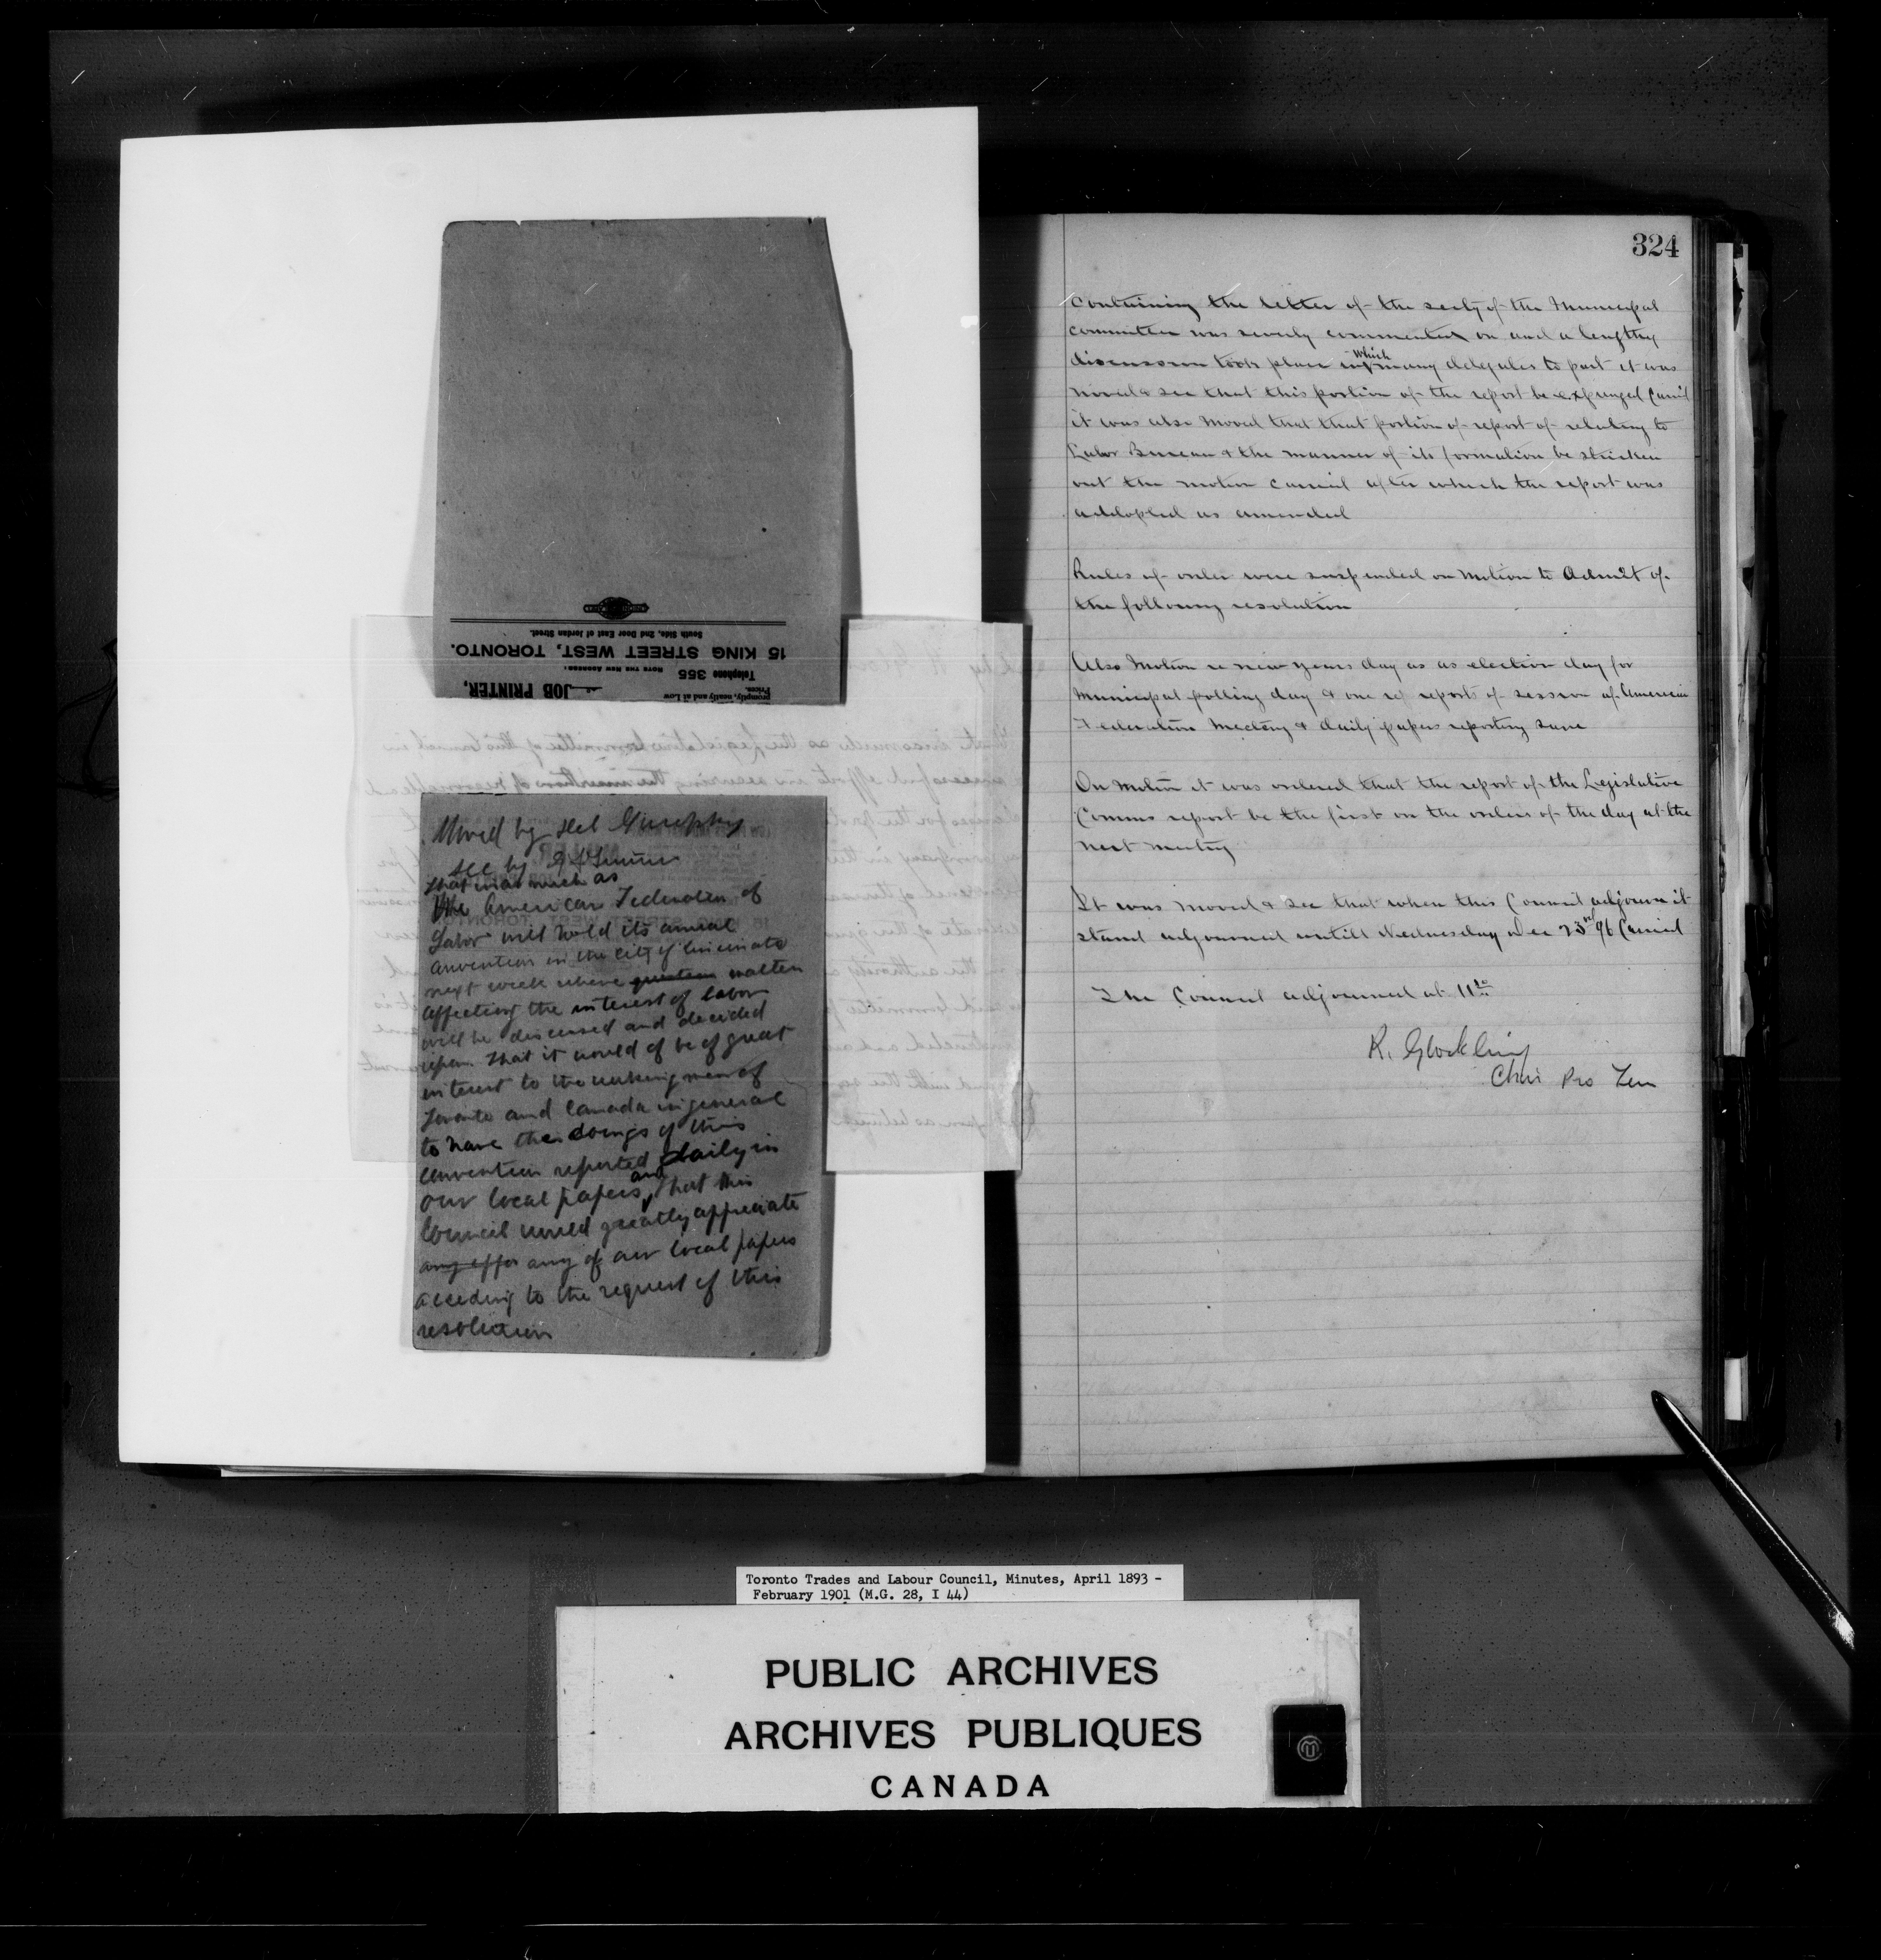 promptly, neatly and at Low
Prices.
JOB PRINTER,
Telephone 355
NOTE THE NEW ADDRESS:
15 KING STREET WEST, TORONTO.
South Side, 2nd Door East of Jordan Street.
Moved by Del Murphy
Sec by
that in as much as
the American Federation of
Labor will hold its annual
convention in the city of Cincinato
next week where question matters
affecting the interest of labor
will be discused and decided
upon. that it would of be of great
interest to the working men of
Toronto and Canada in general
to have the doings of this
convention reported daily in
our local papers and that this
Council would greatly appreciate
any effor any of our local papers
acceding to the request of this
resolution
324
containing the letter of the secty of the Municipal
committee was severly commented on and a lengthy
discussion took place in which many delegates to part it was
moved & sec that this portion of the report be expunged Carried
it was also moved that that portion of report of relating to
Labor Bureau & the manner of its formation be stricken
out the motion carried after which the report was
addopted as amended
Rules of order were suspended on motion to Admit of
the following resolution
Also Motion re new years day as as election day for
Municipal polling day & one re reports of session of American
Federation Meeting & daily papers reporting same
On motion it was ordered that the report of the Legislative
Comms report be the first on the orders of the day at the
next meeting
It was moved & sec that when this Council adjourn it
stand adjourned untill Wednesday Dec 23rd 96 Carried
The Council adjourned at 11
R. Glockling
Chair Pro Tem
Toronto Trades and Labour Council, Minutes, April 1893 -
February 1901 (M.G. 28, I 44)
PUBLIC ARCHIVES
ARCHIVES PUBLIQUES
CANADA